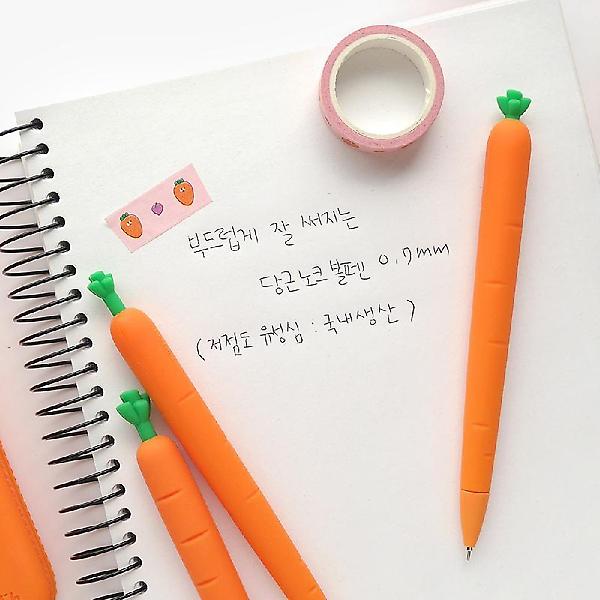 부드럽게 잘 써지는
당근노크볼펜 0.7mm
(저점도 유성심 : 국내생산)